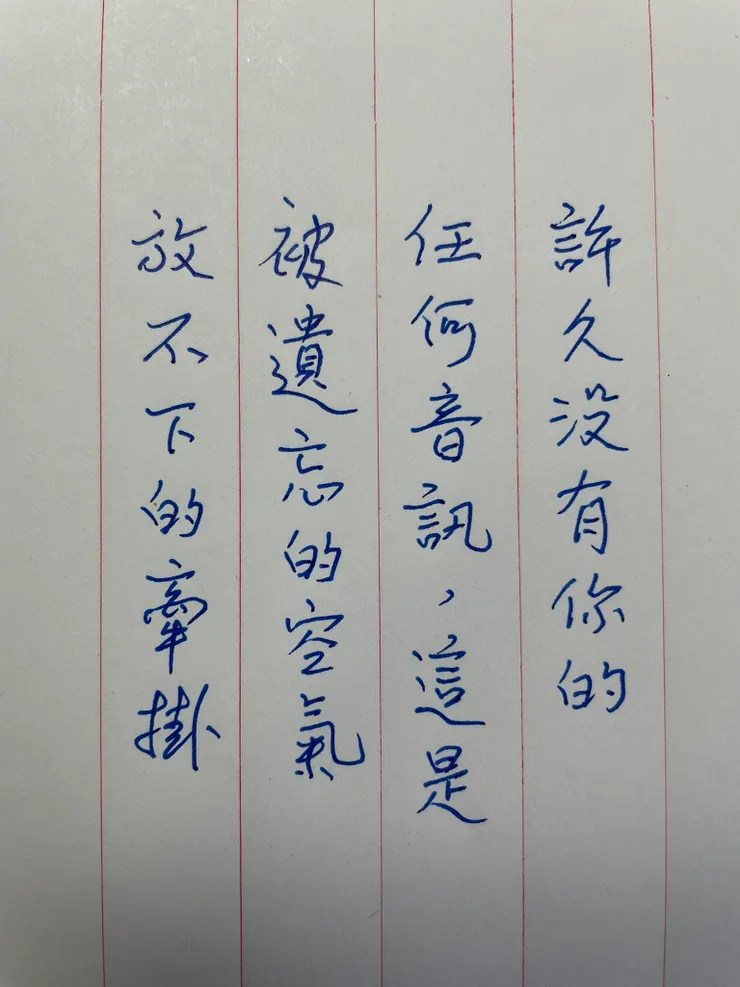 許久没有你的
任何音訊，這是
被遺忘的空氣
放不下的牽掛